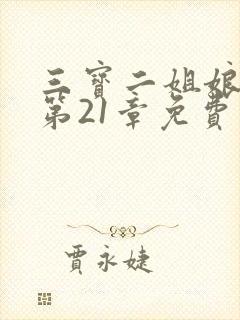 三寶二姐娘
第21章免費
賈永婕